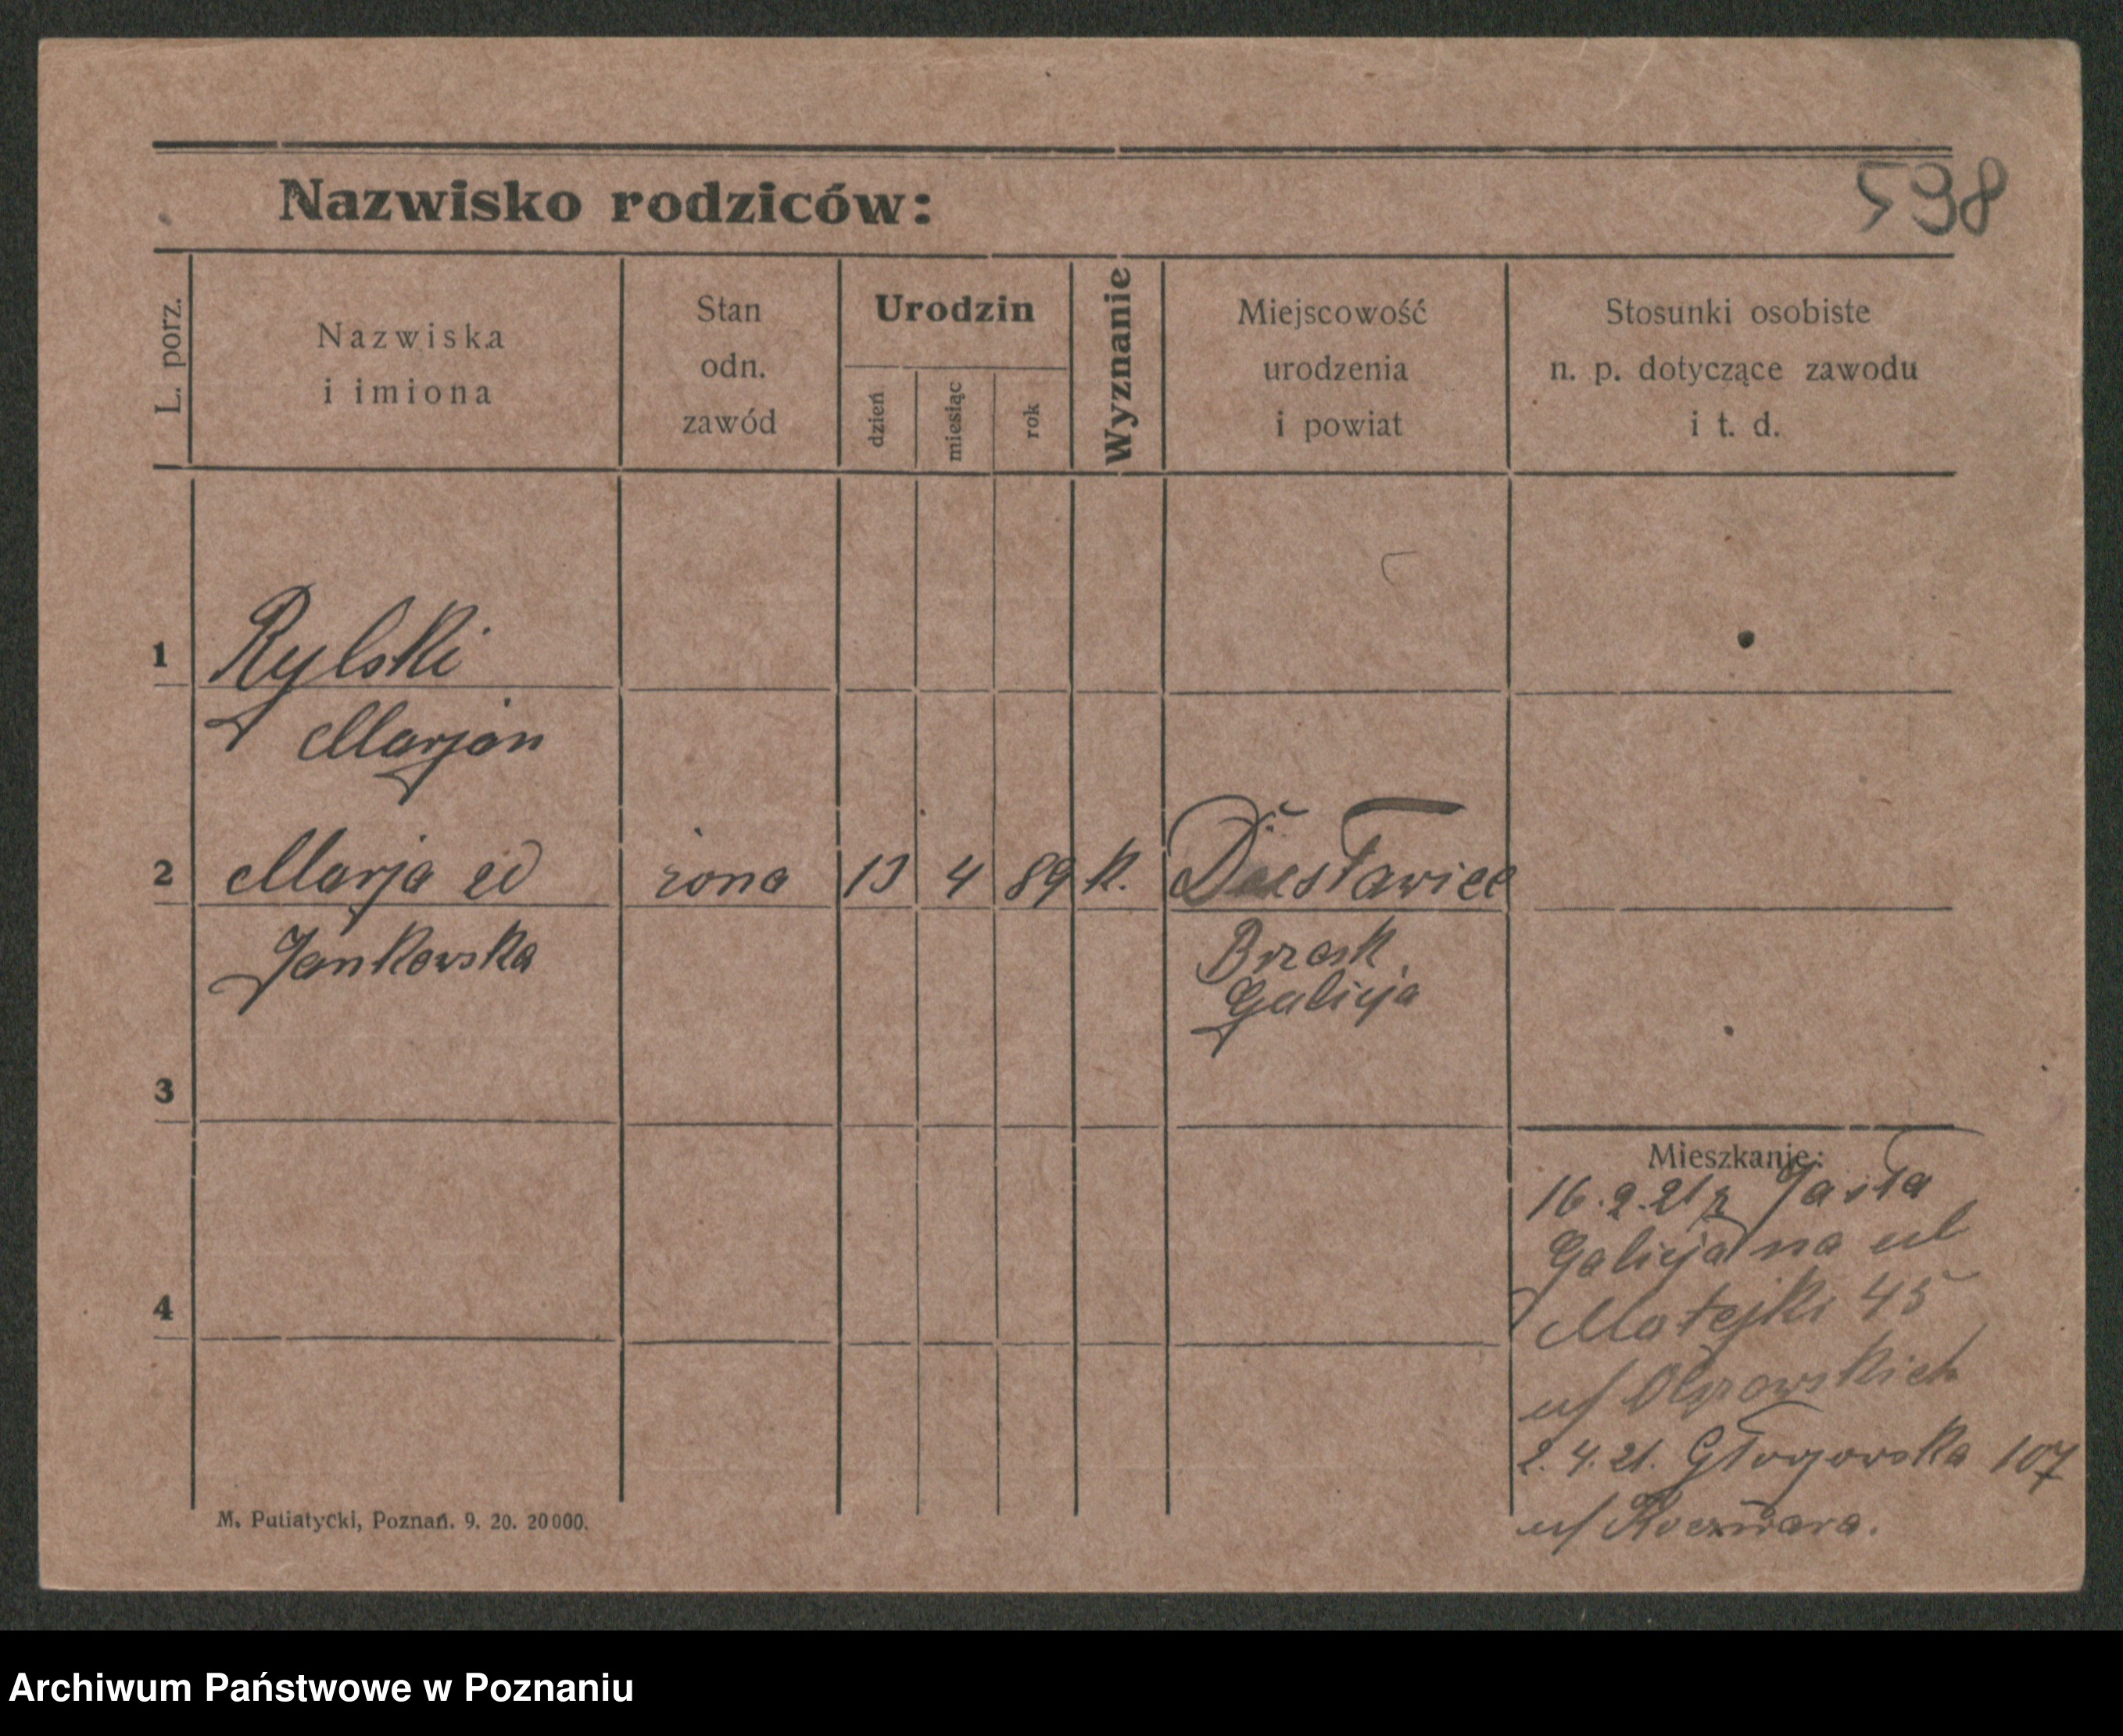 Nazwisko rodziców:
598
L. porz.
Nazwiska
i imiona
Stan
odn.
zawód
Urodzin
dzień
miesiąc
rok
Wyznanie
Miejscowość
urodzenia
i powiat
Stosunki osobiste
n. p. dotyczące zawodu
i t. d.
1 Rylski
Marjan
2 Marja zd żona 13 4 89 k.
Jankowska
Brzesk
Galicja
3
4
Mieszkanie:
16.2.21 z Jasła
Galicja na ul
Matejki 45
u/
2.4.21. Głogowska 107
u/
M. Putiatycki, Poznań. 9. 20. 20000.
Archiwum Państwowe w Poznaniu